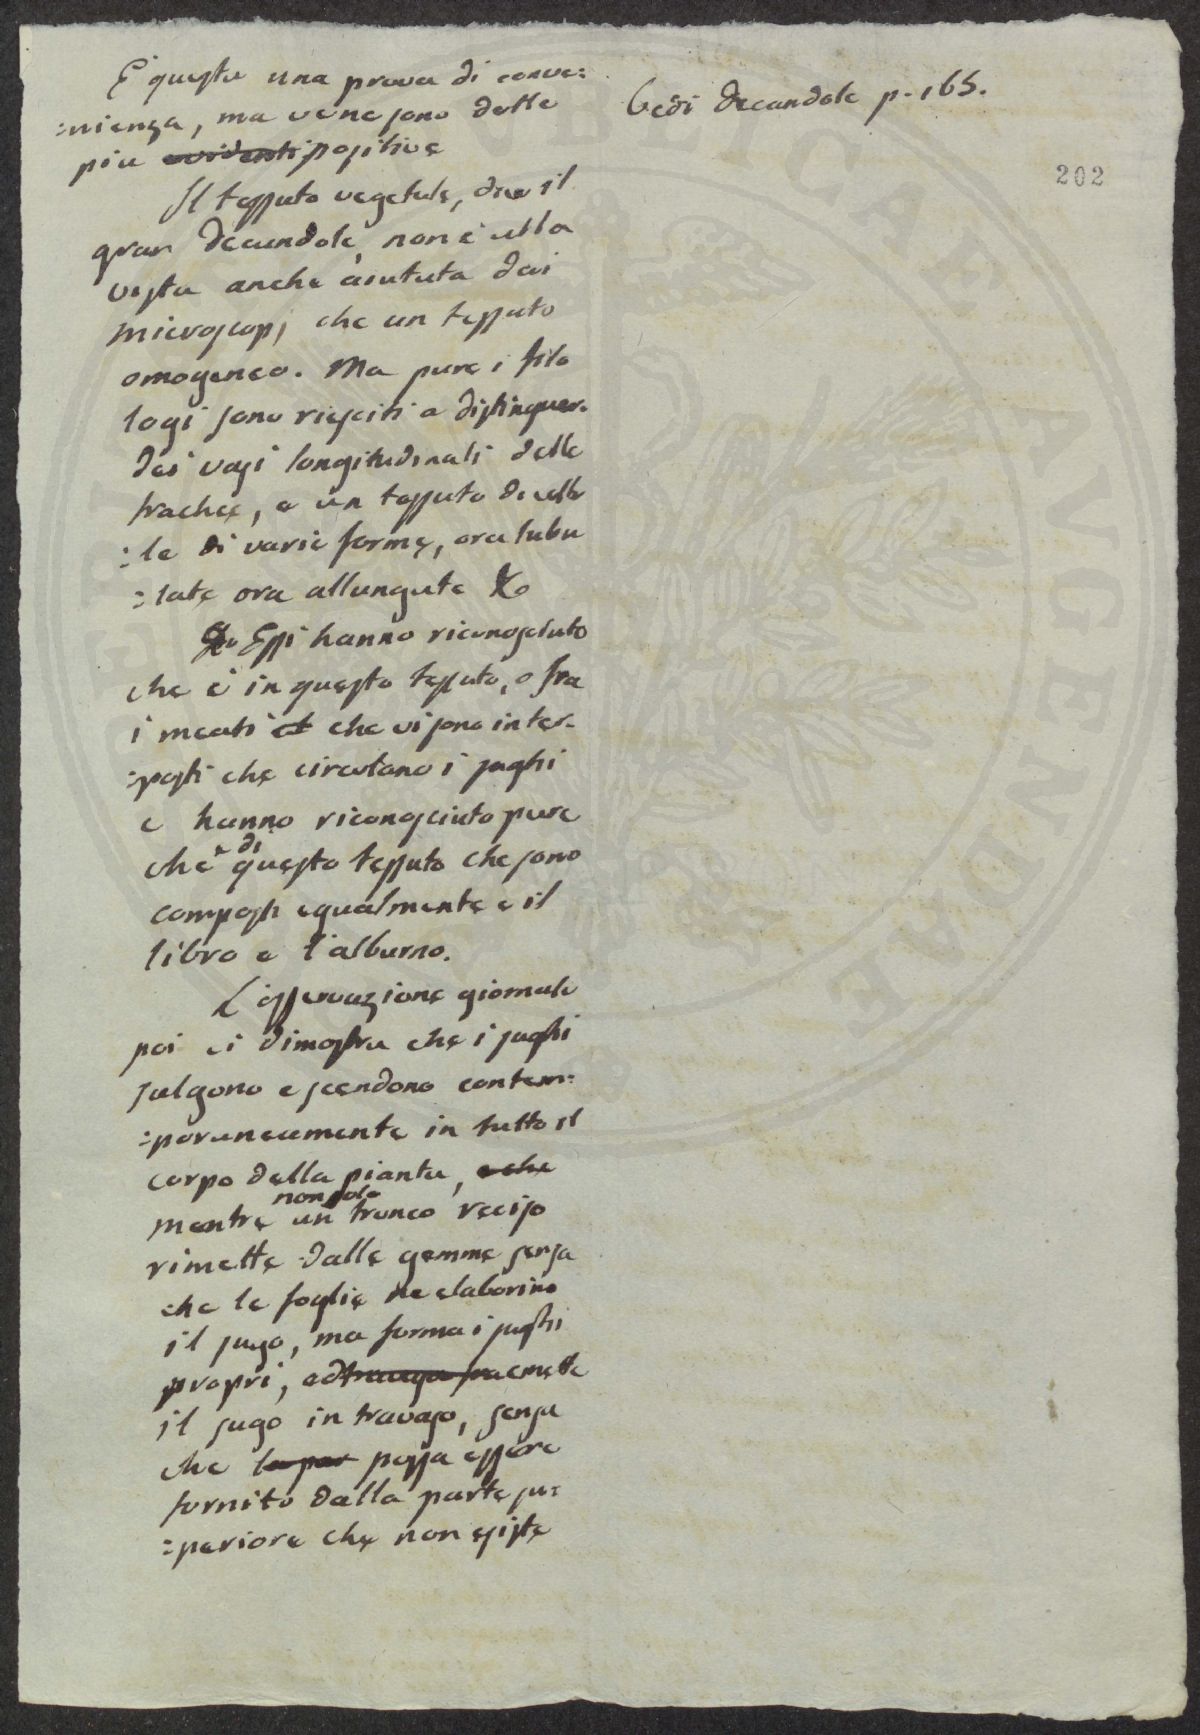 È questa una prova di conve:
:nienza, ma vene sono delle
più evidenti positive
Il tessuto vegetale, dice il
gran Decandole, non è alla
vista anche aiutata dai
microscopj che un tessuto
omogeneo. Ma pure i fito
logi sono riesciti a distinguer.
dei vasi longitudinali delle
trachee, e un tessuto di cellu
:le di varie forme, ora tubu
:late ora allungate &c
Essi hanno riconosciuto
che è in questo tessuto, o fra
i meati che vi sono inter-
:posti che circolano i sughi
e hanno riconosciuto pure
che è di questo tessuto che sono
composti egualmente e il
libro e l'alburno.
L'osservazione giornale
poi ci dimostra che i sughi
salgono e scendono contem:
:poraneamente in tutto il
corpo della pianta, e che
mentre non solo un tronco reciso
rimette dalle gemme senza
che le foglie ne elaborino
il sugo, ma forma i sughi
propri, ed emette
il sugo in travaso, senza
che possa essere
fornito dalla parte su:
:periore che non esiste
Vedi Decandole p. 165.
202